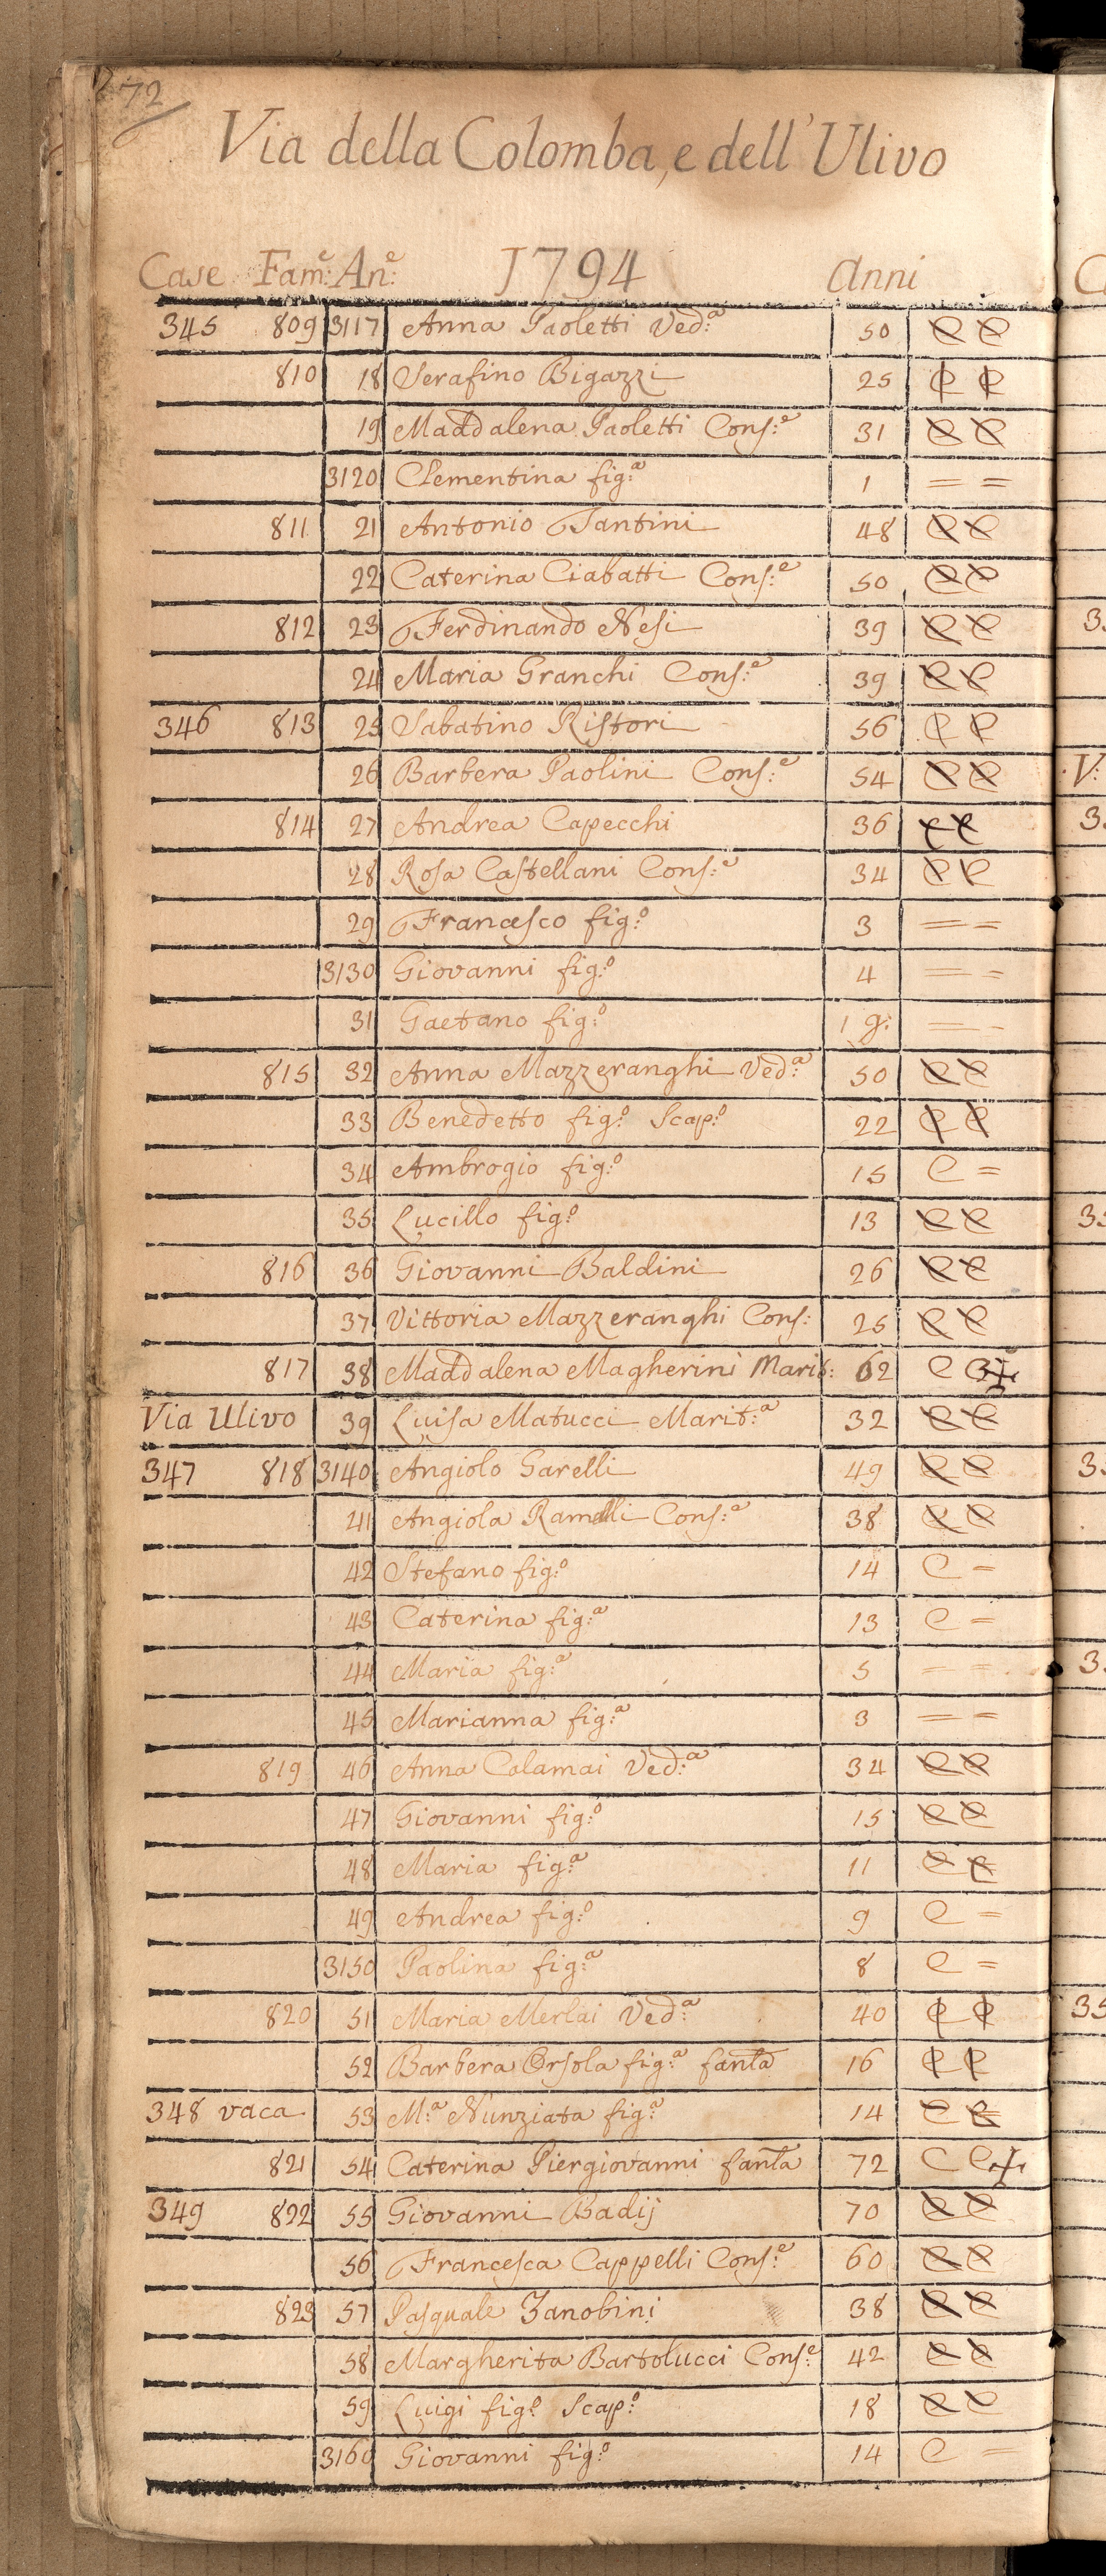 72
Via della Colomba, e dell'Ulivo
Case Fam:e An:e 1794 Anni
345 809 3117 Anna Paoletti Ved:a 50 C C
810 18 Serafino Bigazzi 25 C C
19 Maddalena Paoletti Cons:e 31 C C
3120 Clementina fig:a 1 = =
811 21 Antonio Tantini 48 C C
22 Caterina Ciabatti Cons:e 50 C C
812 23 Ferdinando Nesi 39 C C
24 Maria Granchi Cons:e 39 C C
346 813 25 Sabatino Ristori 56 C C
26 Barbera Paolini Cons:e 54 C C
814 27 Andrea Capecchi 36 C C
28 Rosa Castellani Cons:e 34 C C
29 Francesco fig:o 3 = =
3130 Giovanni fig:o 4 = =
31 Gaetano fig:o 1 g: = =
815 32 Anna Mazzeranghi Ved:a 50 C C
33 Benedetto fig:o Scap:o 22 C C
34 Ambrogio fig:o 15 C =
35 Lucillo fig:o 13 C C
816 36 Giovanni Baldini 26 C C
37 Vittoria Mazzeranghi Cons: 25 C C
817 38 Maddalena Magherini Marit: 62 C C
Via Ulivo 39 Luisa Matucci Marit:a 32 C C
347 818 3140 Angiolo Garelli 49 C C
41 Angiola Cons:e 38 C C
42 Stefano fig:o 14 C =
43 Caterina fig:a 13 C =
44 Maria fig:a 5 = =
45 Marianna fig:a 3 = =
819 46 Anna Calamai Ved:a 34 C C
47 Giovanni fig:o 15 C C
48 Maria fig:a 11 C C
49 Andrea fig:o 9 C =
3150 Paolina fig:a 8 C =
820 51 Maria Merlai Ved:a 40 C C
52 Barbera Orsola fig:a fanla 16 C C
348 vaca 53 M:a Nunziata fig:a 14 C C
821 54 Caterina Piergiovanni fanla 72 C C
349 822 55 Giovanni Badij 70 C C
56 Francesca Cappelli Cons:e 60 C C
823 57 Pasquale Zanobini 38 C C
58 Margherita Bartolucci Cons:e 42 C C
59 Luigi fig:o Scap:o 18 C C
3160 Giovanni fig:o 14 C =